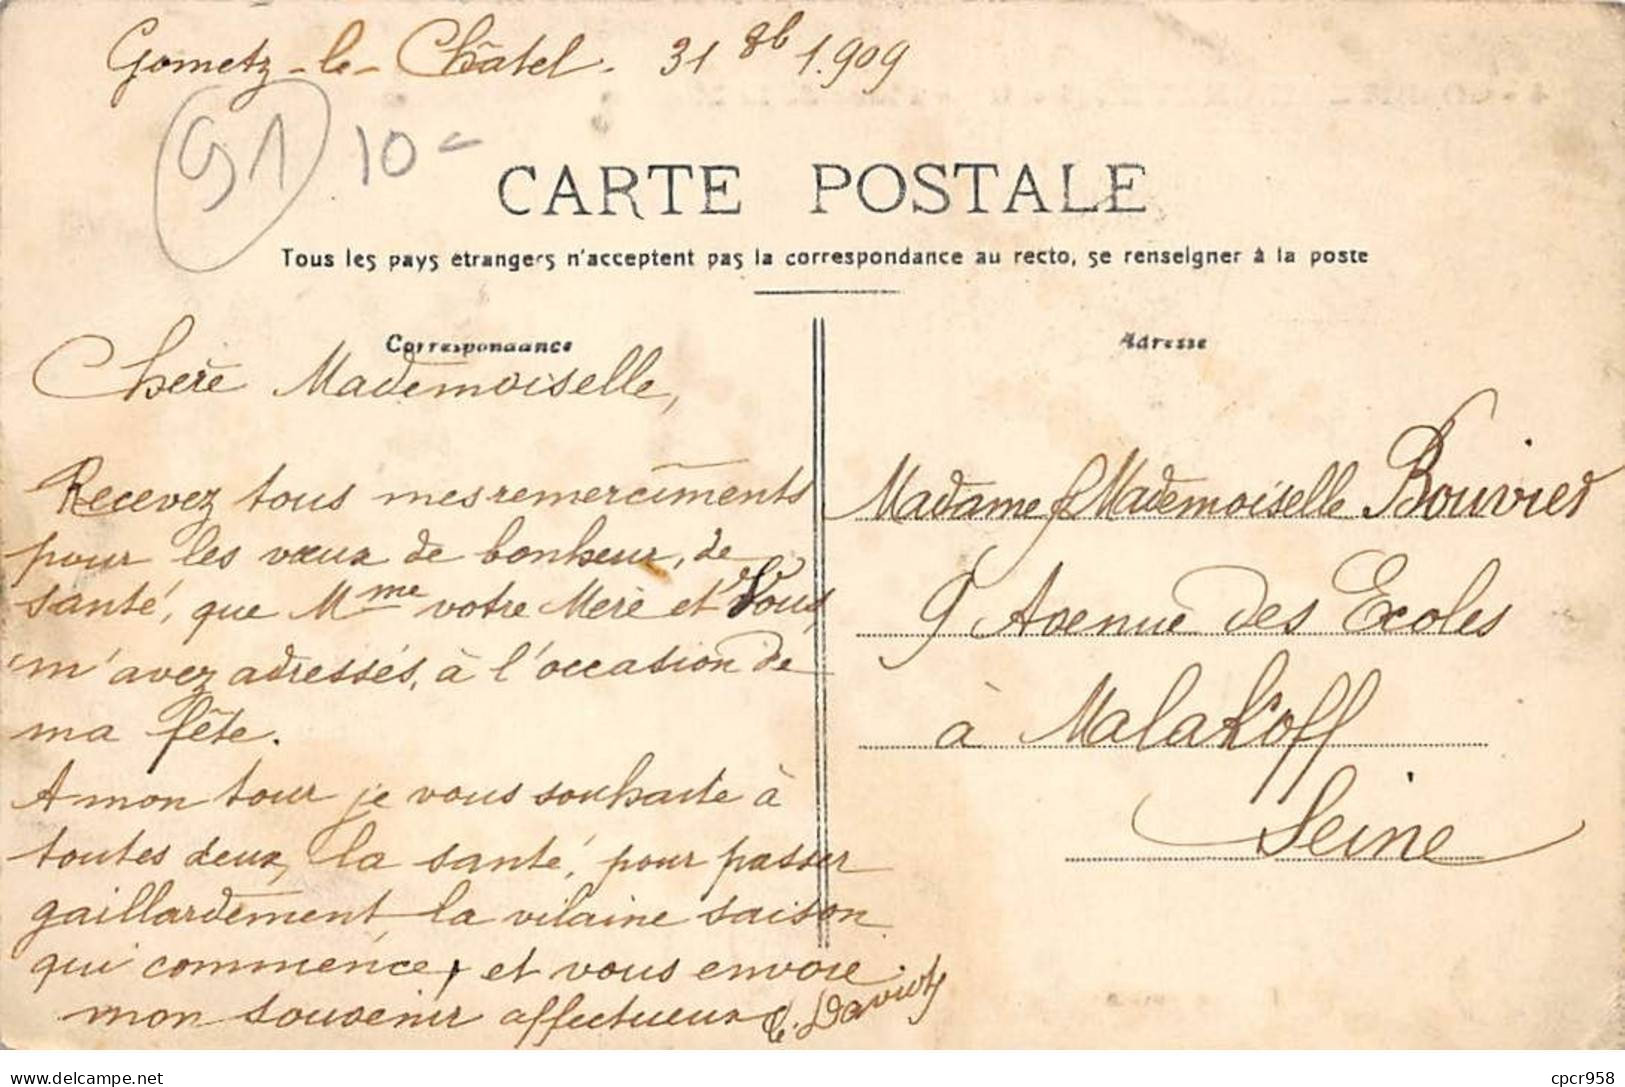 Gometz-le-Châtel. 31 8b 1.909
91 10-
CARTE POSTALE
Tous les pays étrangers n'acceptent pas la correspondance au recto, se renseigner à la poste
Correspondance
Chère Mademoiselle,
Recevez tous mes remerciments
pour les vœux de bonheur, de
santé, que Mme votre Mère et Vous,
m'avez adressés, à l'occasion de
ma fête.
A mon tour je vous souhaite à
toutes deux, la santé, pour passer
gaillardement la vilaine saison
qui commence, et vous envoie
mon souvenir affectueux
Adresse
Madame & Mademoiselle Bouvier
9 Avenue des Ecoles
à Malakoff
Seine
delcampe.net
cpcr958